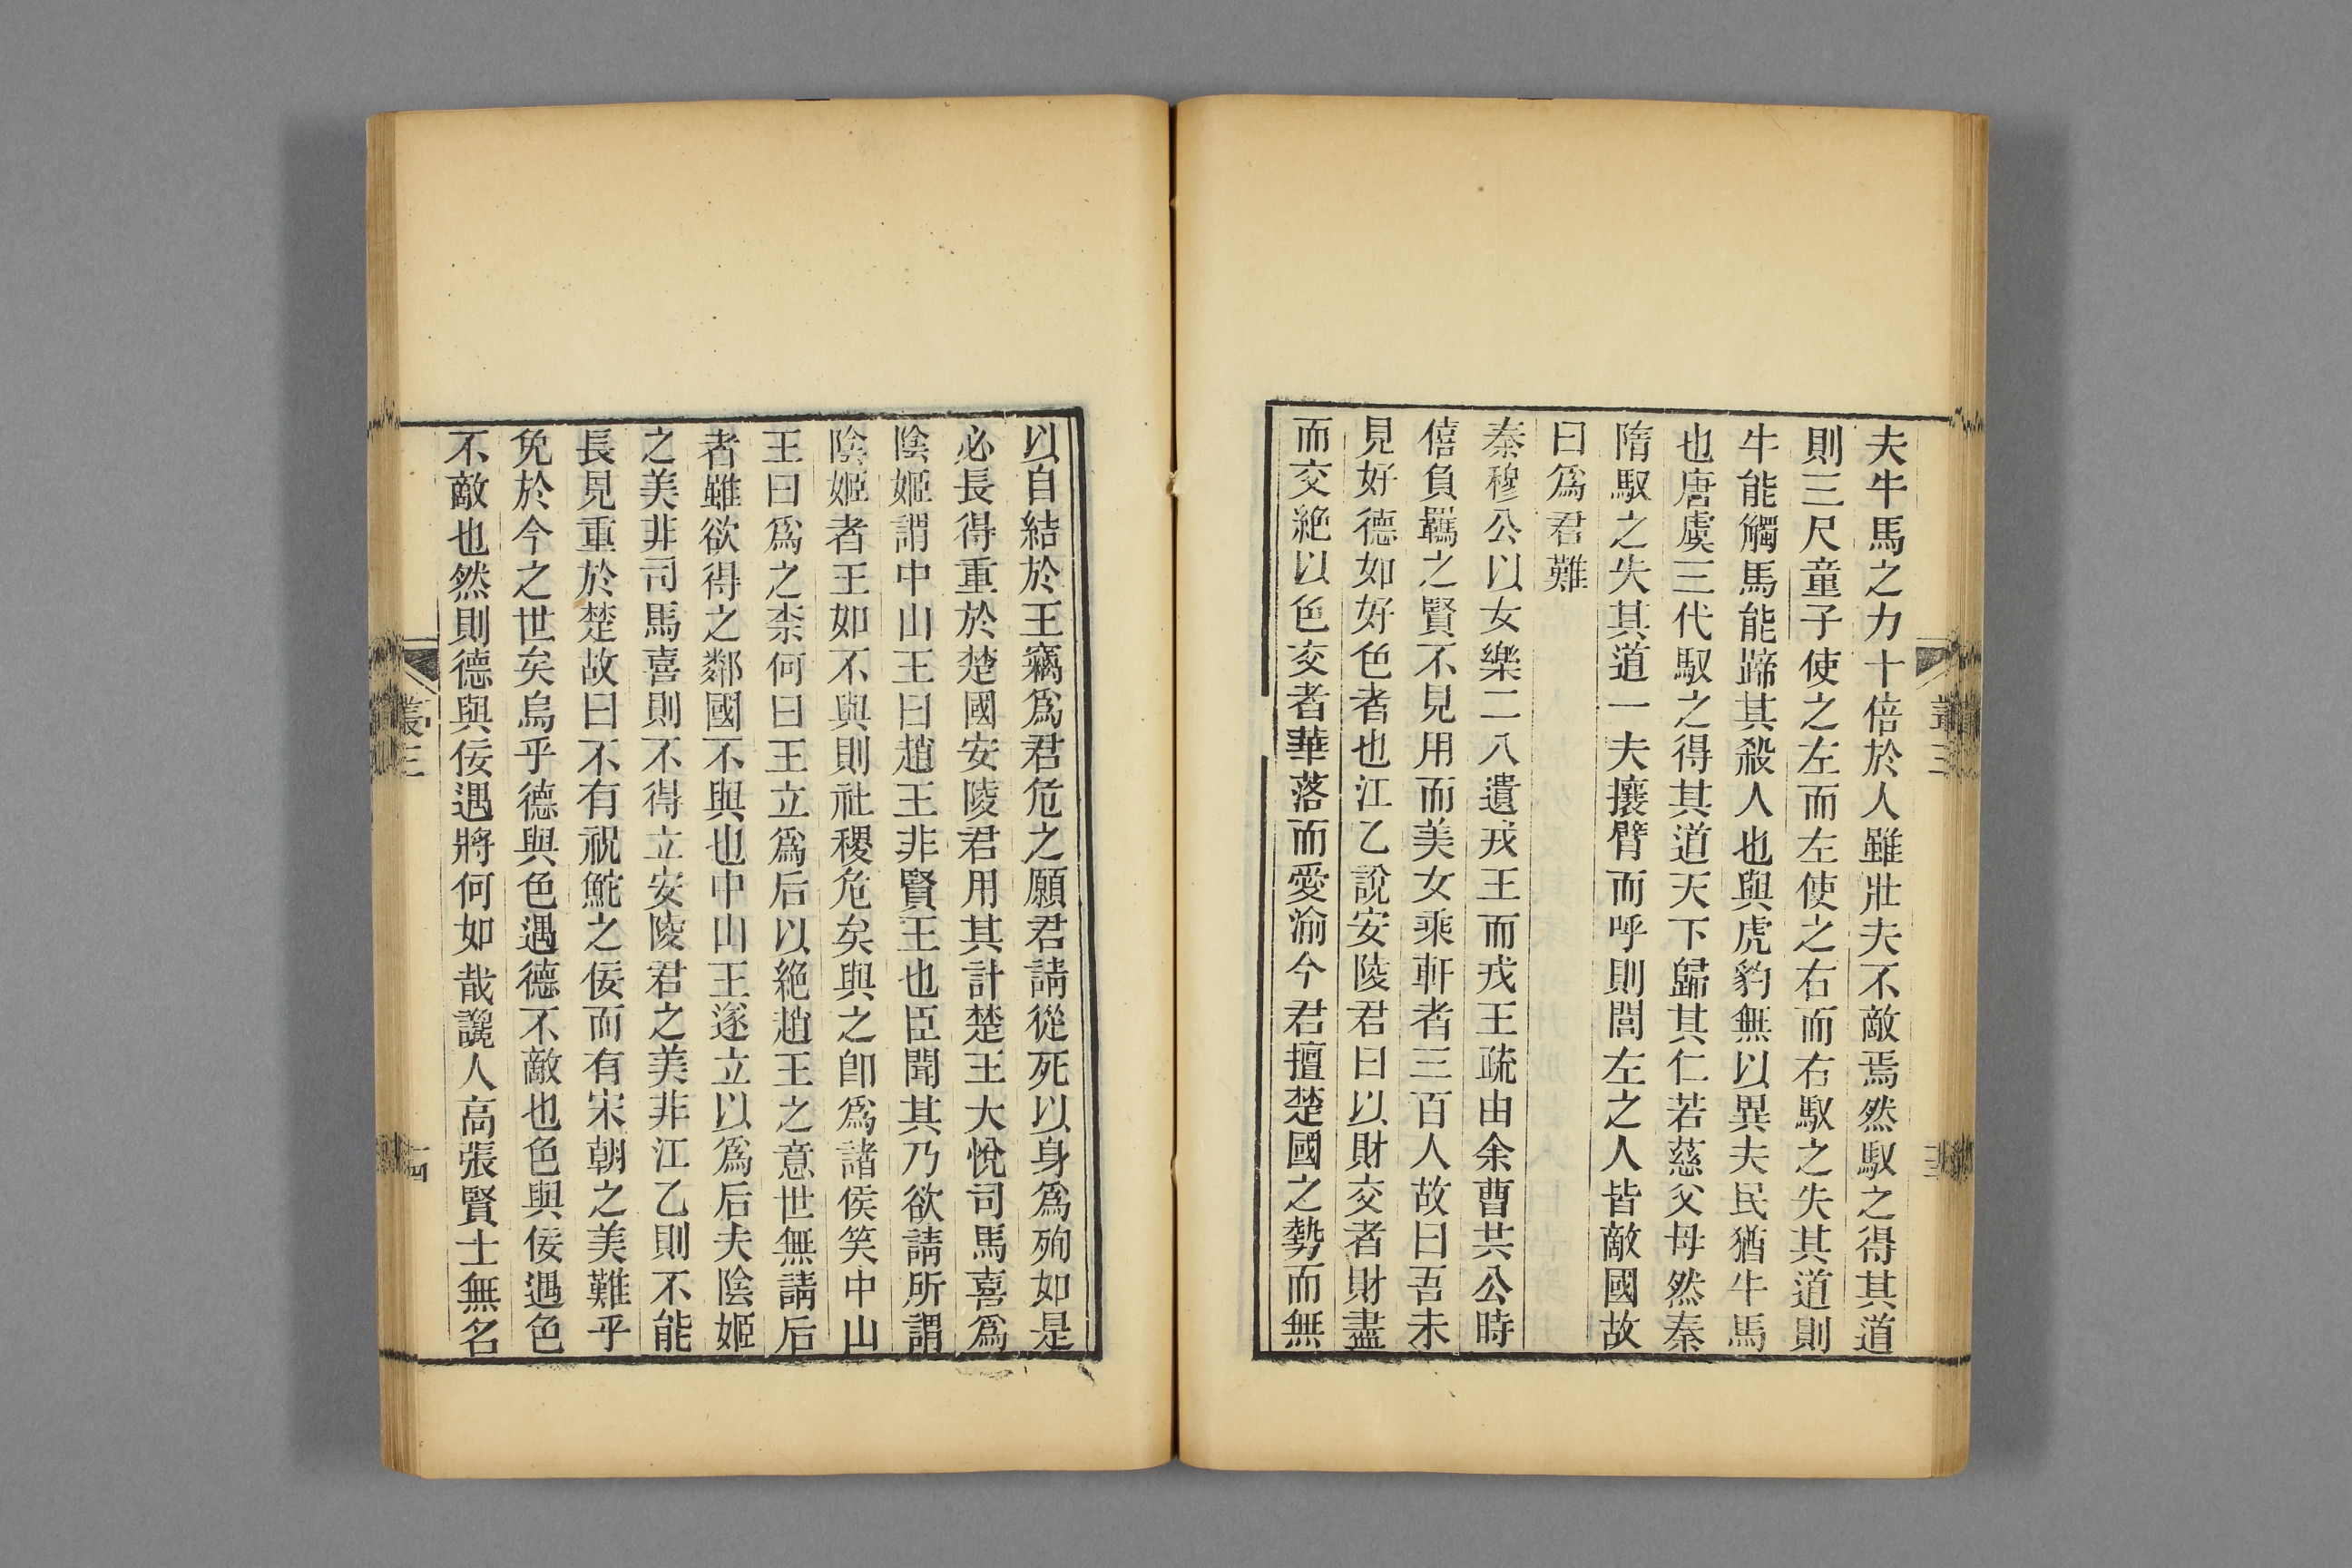 夫牛馬之力十倍於人雖壯夫不敵焉然馭之得其道
則三尺童子使之左而左使之右而右馭之失其道則
牛能觸馬能蹄其殺人也與虎豹無以異夫民猶牛馬
也唐虞三代馭之得其道天下歸其仁若慈父母然秦
隋馭之失其道一夫攘臂而呼則閭左之人皆敵國故
曰爲君難
秦穆公以女樂二八遺戎王而戎王疏由余曹共公時
僖負羈之賢不見用而美女乘軒者三百人故曰吾未
見好德如好色者也江乙說安陵君曰以財交者財盡
而交絶以色交者華落而愛渝今君擅楚國之勢而無
以自結於王竊爲君危之願君請從死以身爲殉如是
必長得重於楚國安陵君用其計楚王大悅司馬喜爲
陰姬謂中山王曰趙王非賢王也臣聞其乃欲請所謂
陰姬者王如不與則社稷危矣與之卽爲諸侯笑中山
王曰爲之柰何曰王立爲后以絶趙王之意世無請后
者雖欲得之鄰國不與也中山王遂立以爲后夫陰姬
之美非司馬喜則不得立安陵君之美非江乙則不能
長見重於楚故曰不有祝鮀之佞而有宋朝之美難乎
免於今之世矣烏乎德與色遇德不敵也色與佞遇色
不敵也然則德與佞遇將何如哉讒人高張賢士無名
叢三